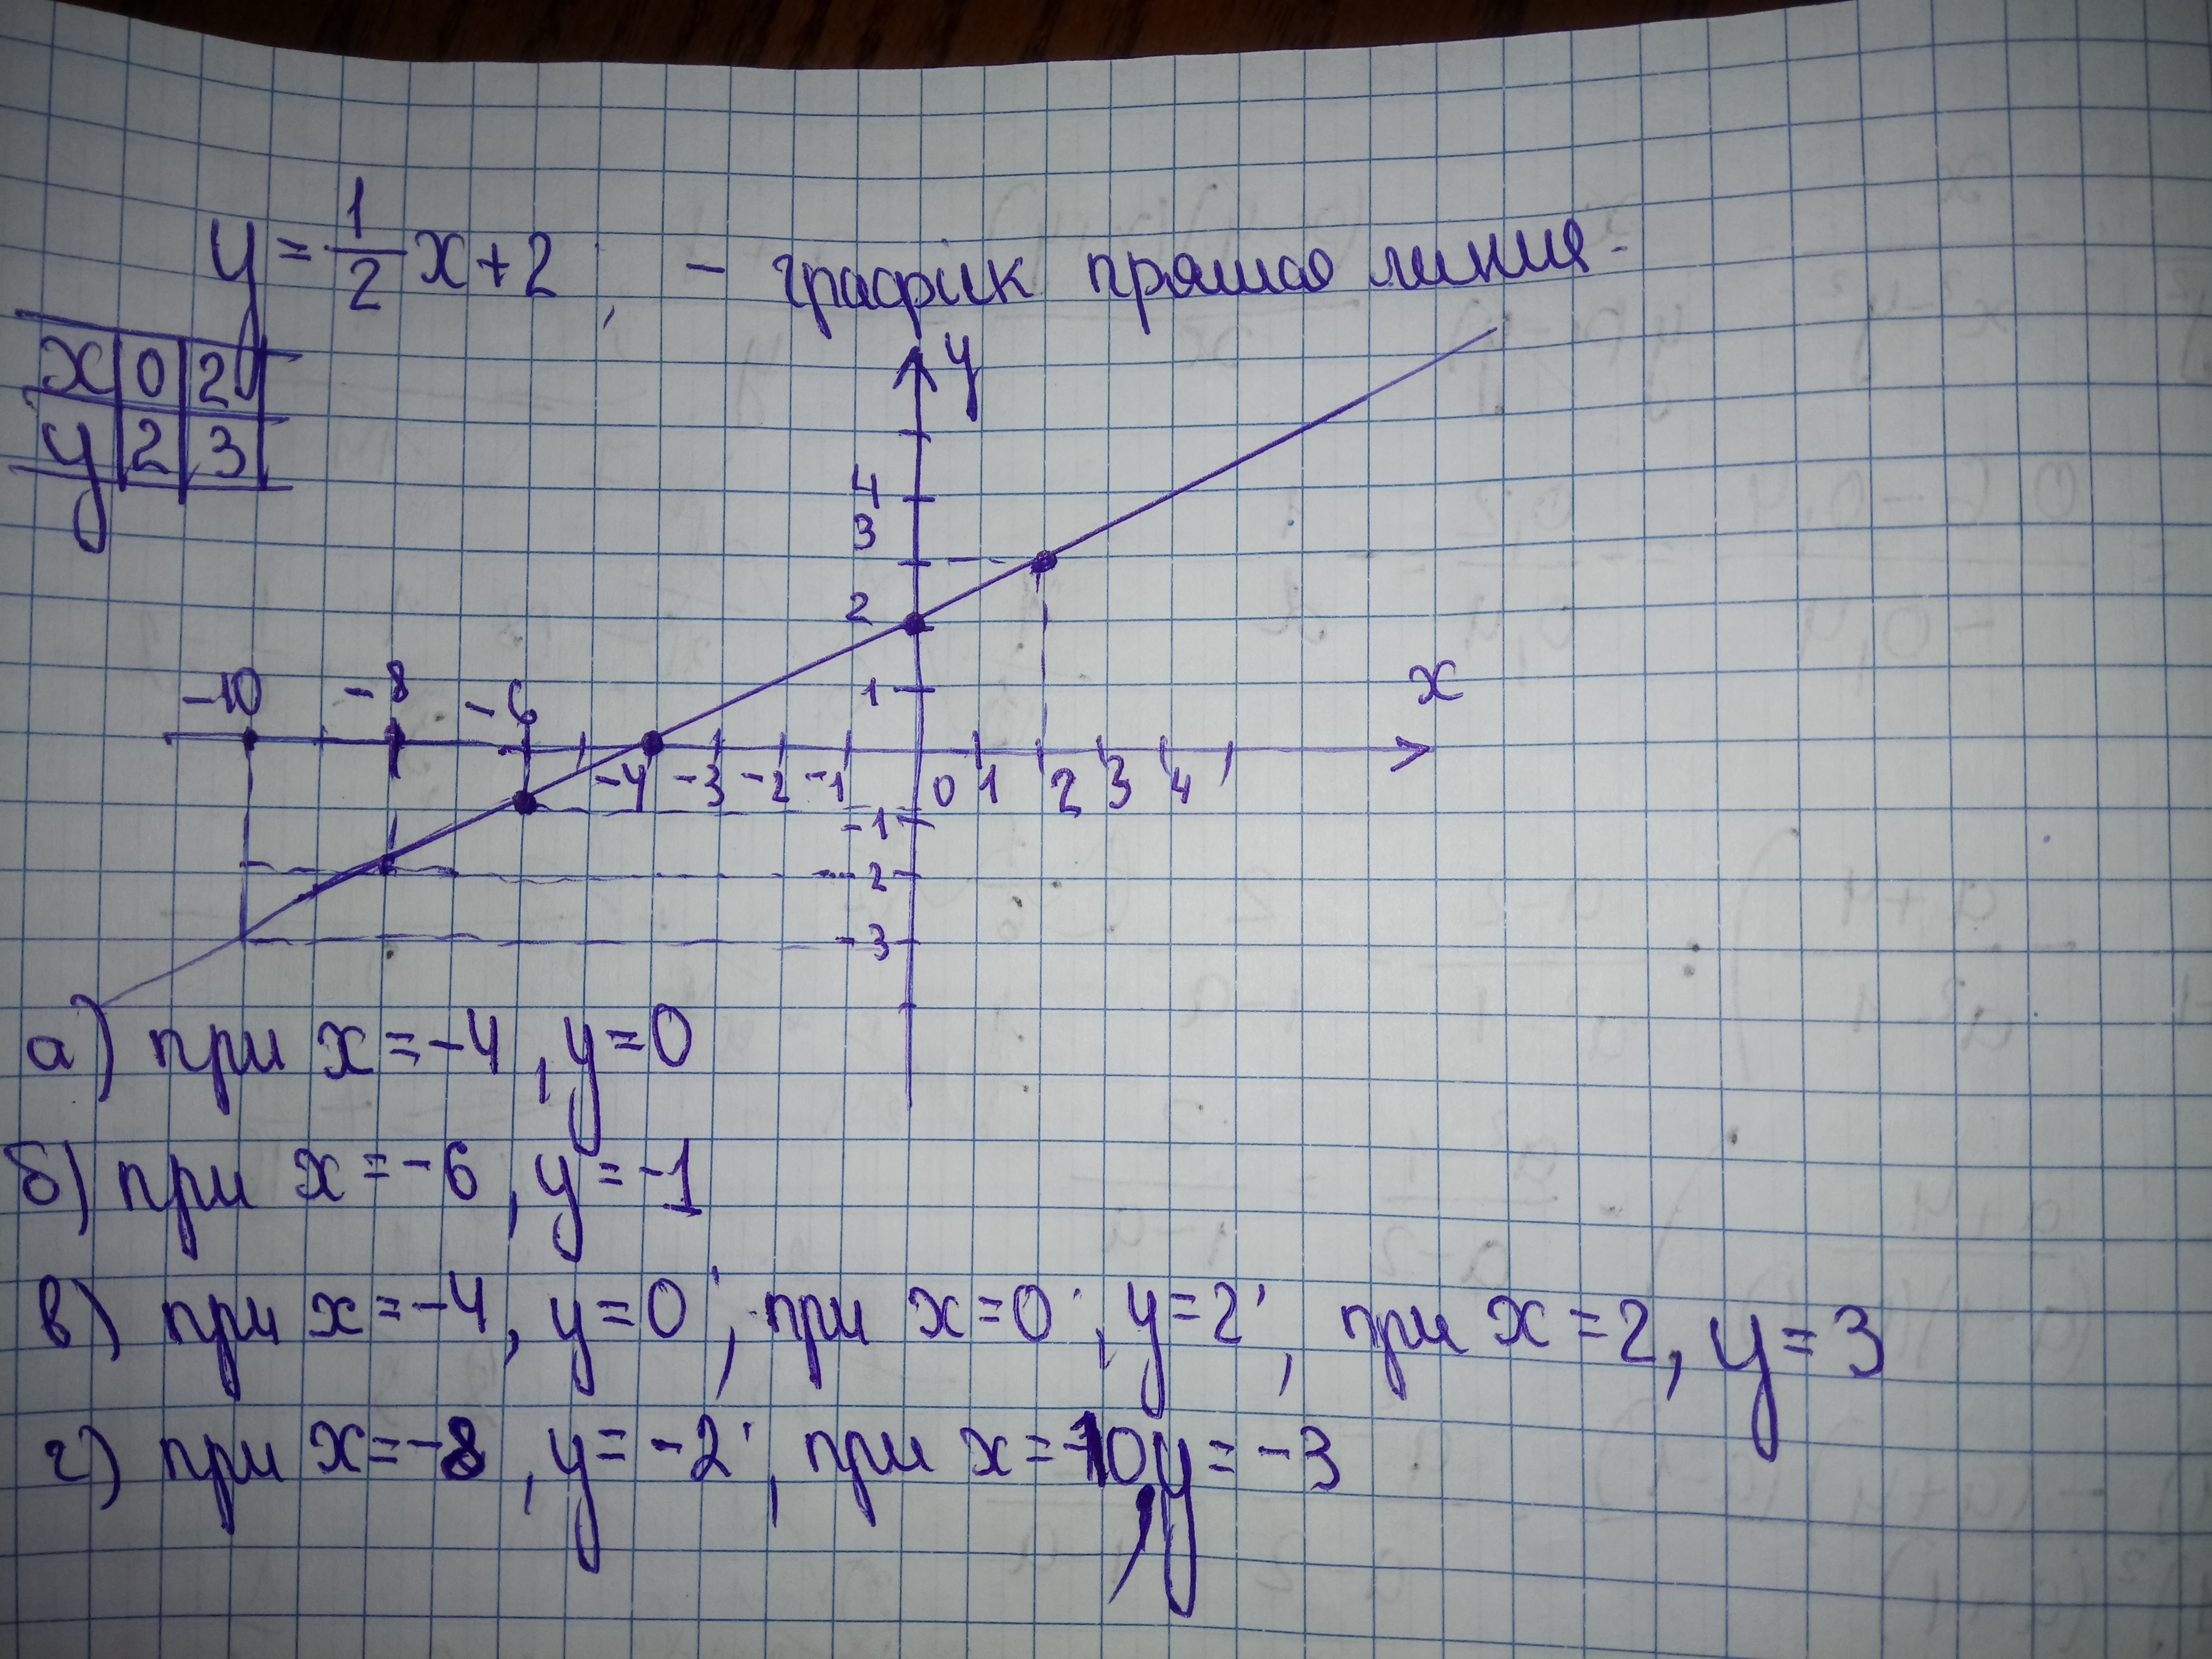 y = 1/2 x + 2, - графік пряма линия.
x | 0 | 2
y | 2 | 3
y
4
3
2
1
-10 -8 -6 x
-4 -3 -2 -1 0 1 2 3 4
-1
-2
-3
а) при x = -4, y = 0
б) при x = -6, y = -1
в) при x = -4, y = 0; при x = 0, y = 2; при x = 2, y = 3
г) при x = -8, y = -2; при x = -10, y = -3